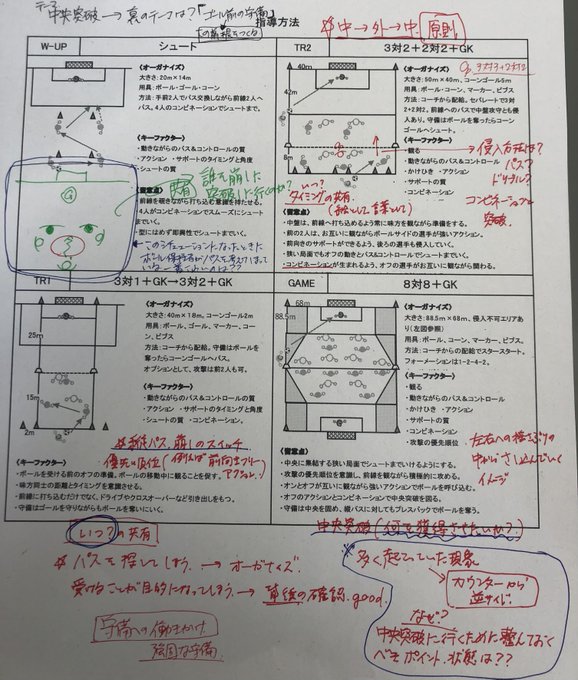 中央突破→真のテーマは?「ゴール前の守備」
の崩壊をつくる
指導方法
☆中→外→中 原則
W-UP
シュート
《オーガナイズ》
大きさ:20m×14m
用具:ボール・ゴール・コーン
方法:手前2人でパス交換しながら前線2人へ
パス。4人のコンビネーションでシュートまで。
《キーファクター》
・動きながらのパス&コントロールの質
・アクション ・サポートのタイミングと角度
・シュートの質
《留意点》
前線を覗きながら打ち込む意識を持たせる。
4人がコンビネーションでスムーズにシュートま
でいく。
型にはめず即興性でシュートまで。
共有
誰を崩した
突破に行くのか?
このシチュエーションになったときた
ボール保持者がパスを考えてしまって
いる
TR2
3対2+2対2+GK
40m
42m
8m
《オーガナイズ》
Op 3対3+2対2
大きさ:50m×40m、コーンゴール5m
用具:ボール・コーン、マーカー、ビブス
方法:コーチから配給。セパレートで3対
2+2対2。前線へのパスで中盤攻守とも侵
入あり。守備はボールを奪ったらコーン
ゴールへシュート。
《キーファクター》
・観る
・動きながらのパス&コントロール
・かけひき ・アクション
・サポートの質
・コンビネーション
侵入方法は?
パス?
ドリブル?
コンビネーション
突破
いつ?
タイミングの共有
(動きとして 言葉として)
《留意点》
・中盤は、前線へ打ち込めるよう常に味方を観ながら準備をする。
・前の2人は、お互いに観ながらボールサイドの選手が強いアクション。
・前向きのサポートができるよう、後ろの選手も侵入していく。
・狭い局面でもオフの動きとパス&コントロールでシュートまでいく。
・コンビネーションが生まれるよう、オフの選手がお互いに観ながら関わる。
TR1
3対1+GK→3対2+GK
25m
15m
2m
《オーガナイズ》
大きさ:40m×18m、コーンゴール2m
用具:ボール、ゴール、マーカー、コー
ン、ビブス
方法:コーチから配給。守備はボールを
奪ったらコーンゴールへパス。
オプションとして、攻撃は前2人も可。
《キーファクター》
・動きながらのパス&コントロールの質
・アクション ・サポートのタイミングと角度
・シュートの質 ・コンビネーション
☆縦パス 崩しのスイッチ
優先順位(例えば前向きフリー
アクション)
《キーファクター》
・ボールを受ける前のオフの準備。ボールの移動中に観ることを促す。
・味方同士の距離とタイミングを意識させる。
・前線に打ち込むだけでなく、ドライブやクロスオーバーなど引き出しをもつ。
・守備はゴールを守りながらもボールを奪いにいく。
GAME
8対8+GK
68m
88.5m
《オーガナイズ》
大きさ:88.5m×68m、侵入不可エリアあ
り(左図参照)
用具:ボール・ゴール、マーカー、ビブス
方法:コーチからの配給でスタースタート。
フォーメーションは1-2-4-2。
《キーファクター》
・観る
・動きながらのパス&コントロール
・かけひき ・アクション
・サポートの質
・コンビネーション
・攻撃の優先順位
左右への揺さぶりの
中からさし込んでいく
イメージ
《留意点》
・中央に集結する狭い局面でシュートまでいけるようにする。
・攻撃の優先順位を意識し、前線を観ながら積極的に攻める。
・オンとオフが互いに観ながら強いアクションでボールを呼び込む。
・オフのアクションとコンビネーションで中央突破を図る。
・守備は中央を固め、縦パスに対してもプレスバックでボールを奪う。
中央突破(何を獲得させたいか?)
いつ?の共有
☆パスを探してしまう。→オーガナイズ。
受けることが目的になってしまう。→前線の確認. good.
守備への働きかけ
強固な守備
☆多く起こっていた現象
カウンターから
逆サイド
なぜ?
中央突破に行くために整えておく
べきポイント、状態は??